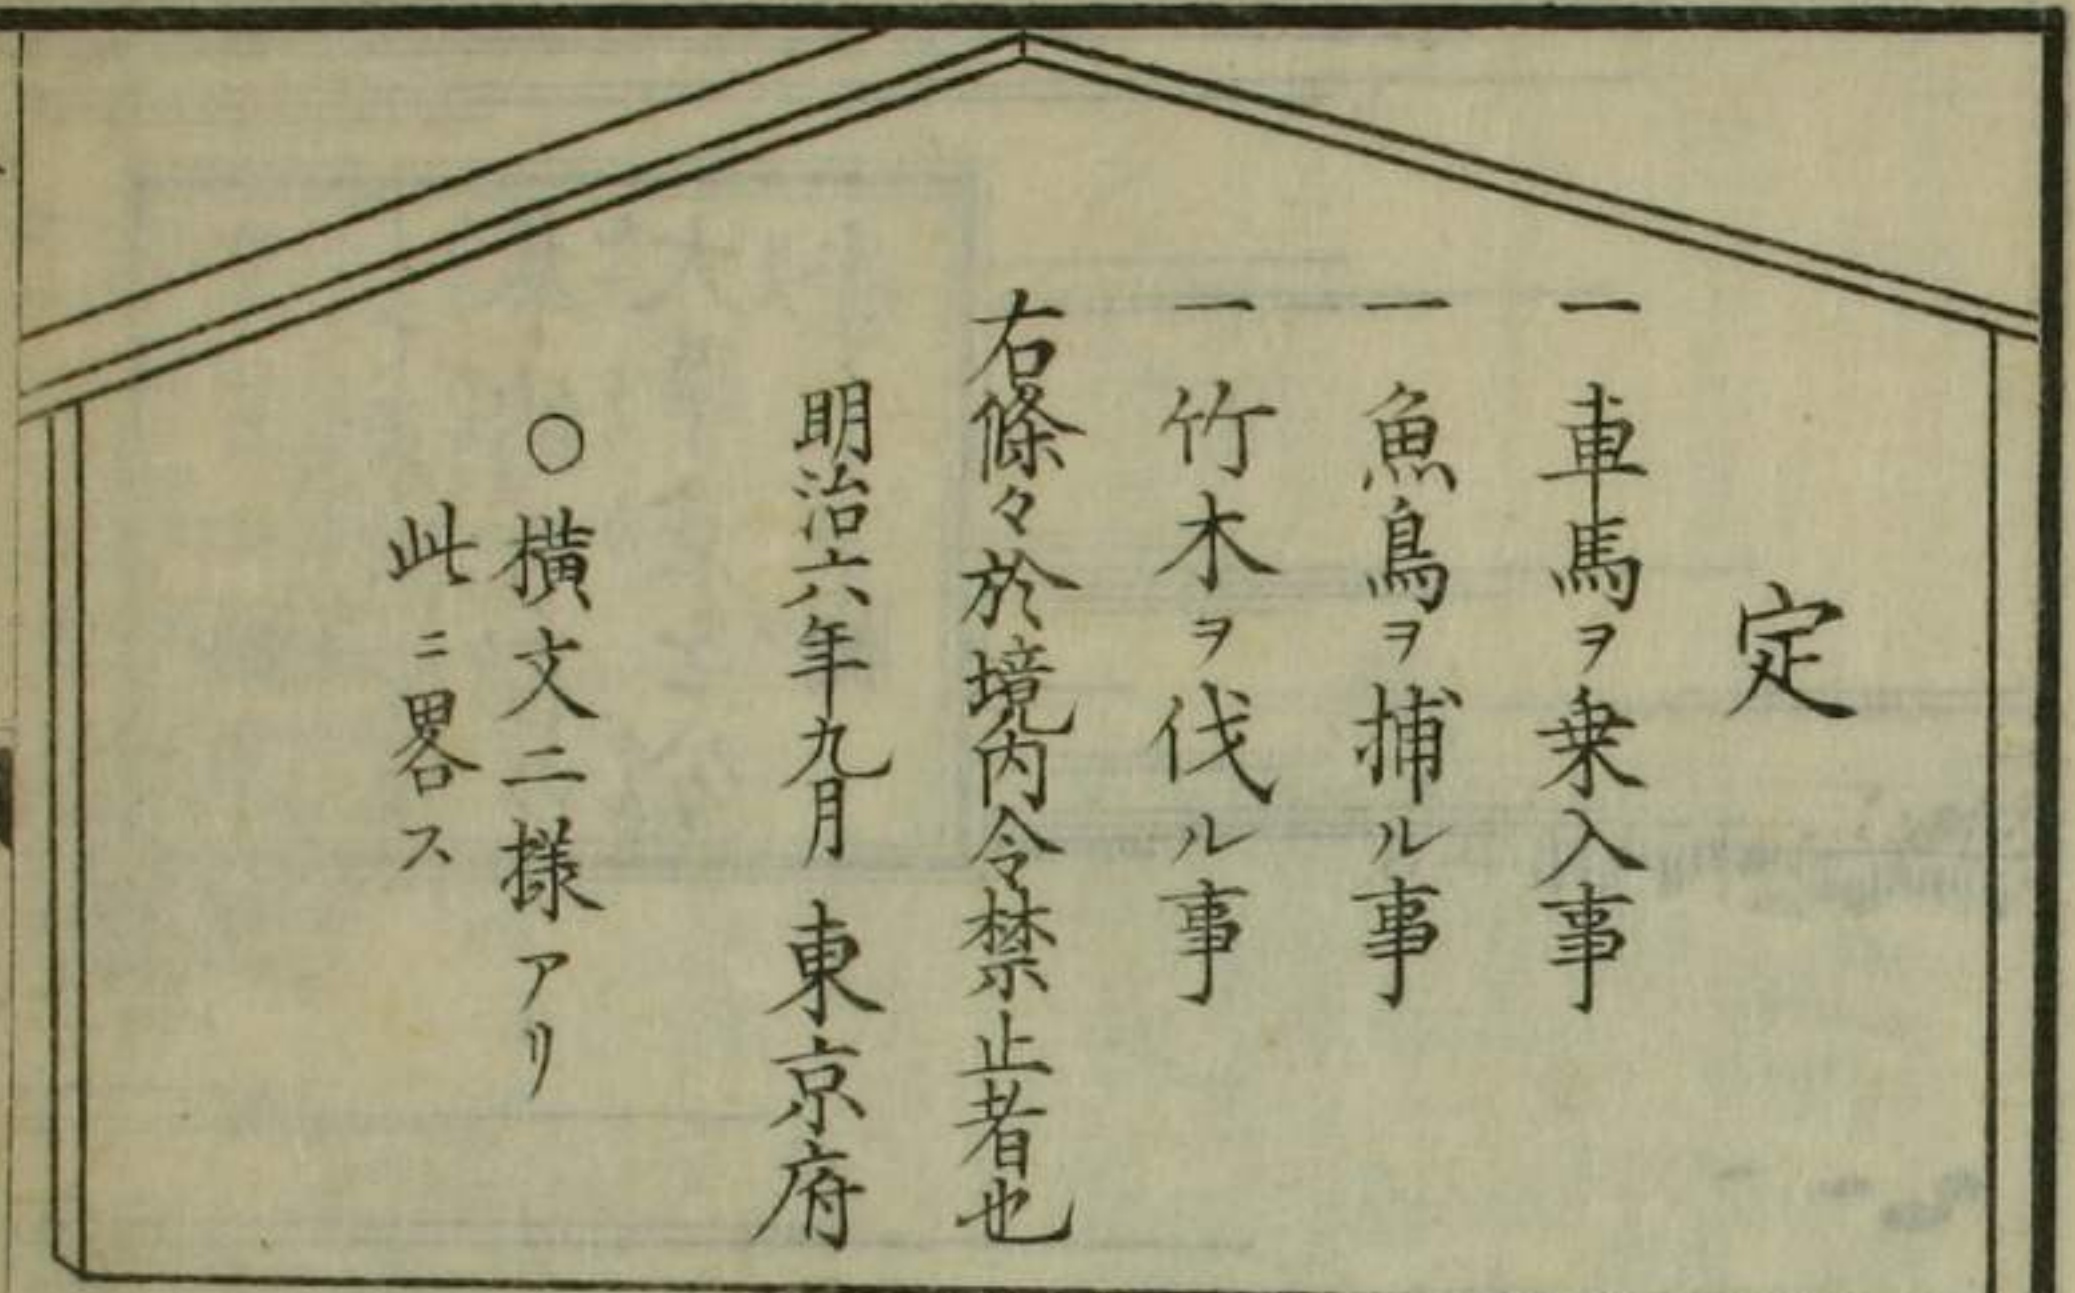 定
一 車馬ヲ乗入事
一 魚鳥ヲ捕ル事
一 竹木ヲ伐ル事
右條々於境内令禁止者也
明治六年九月 東京府
○橫文二樣アリ
此ニ畧ス